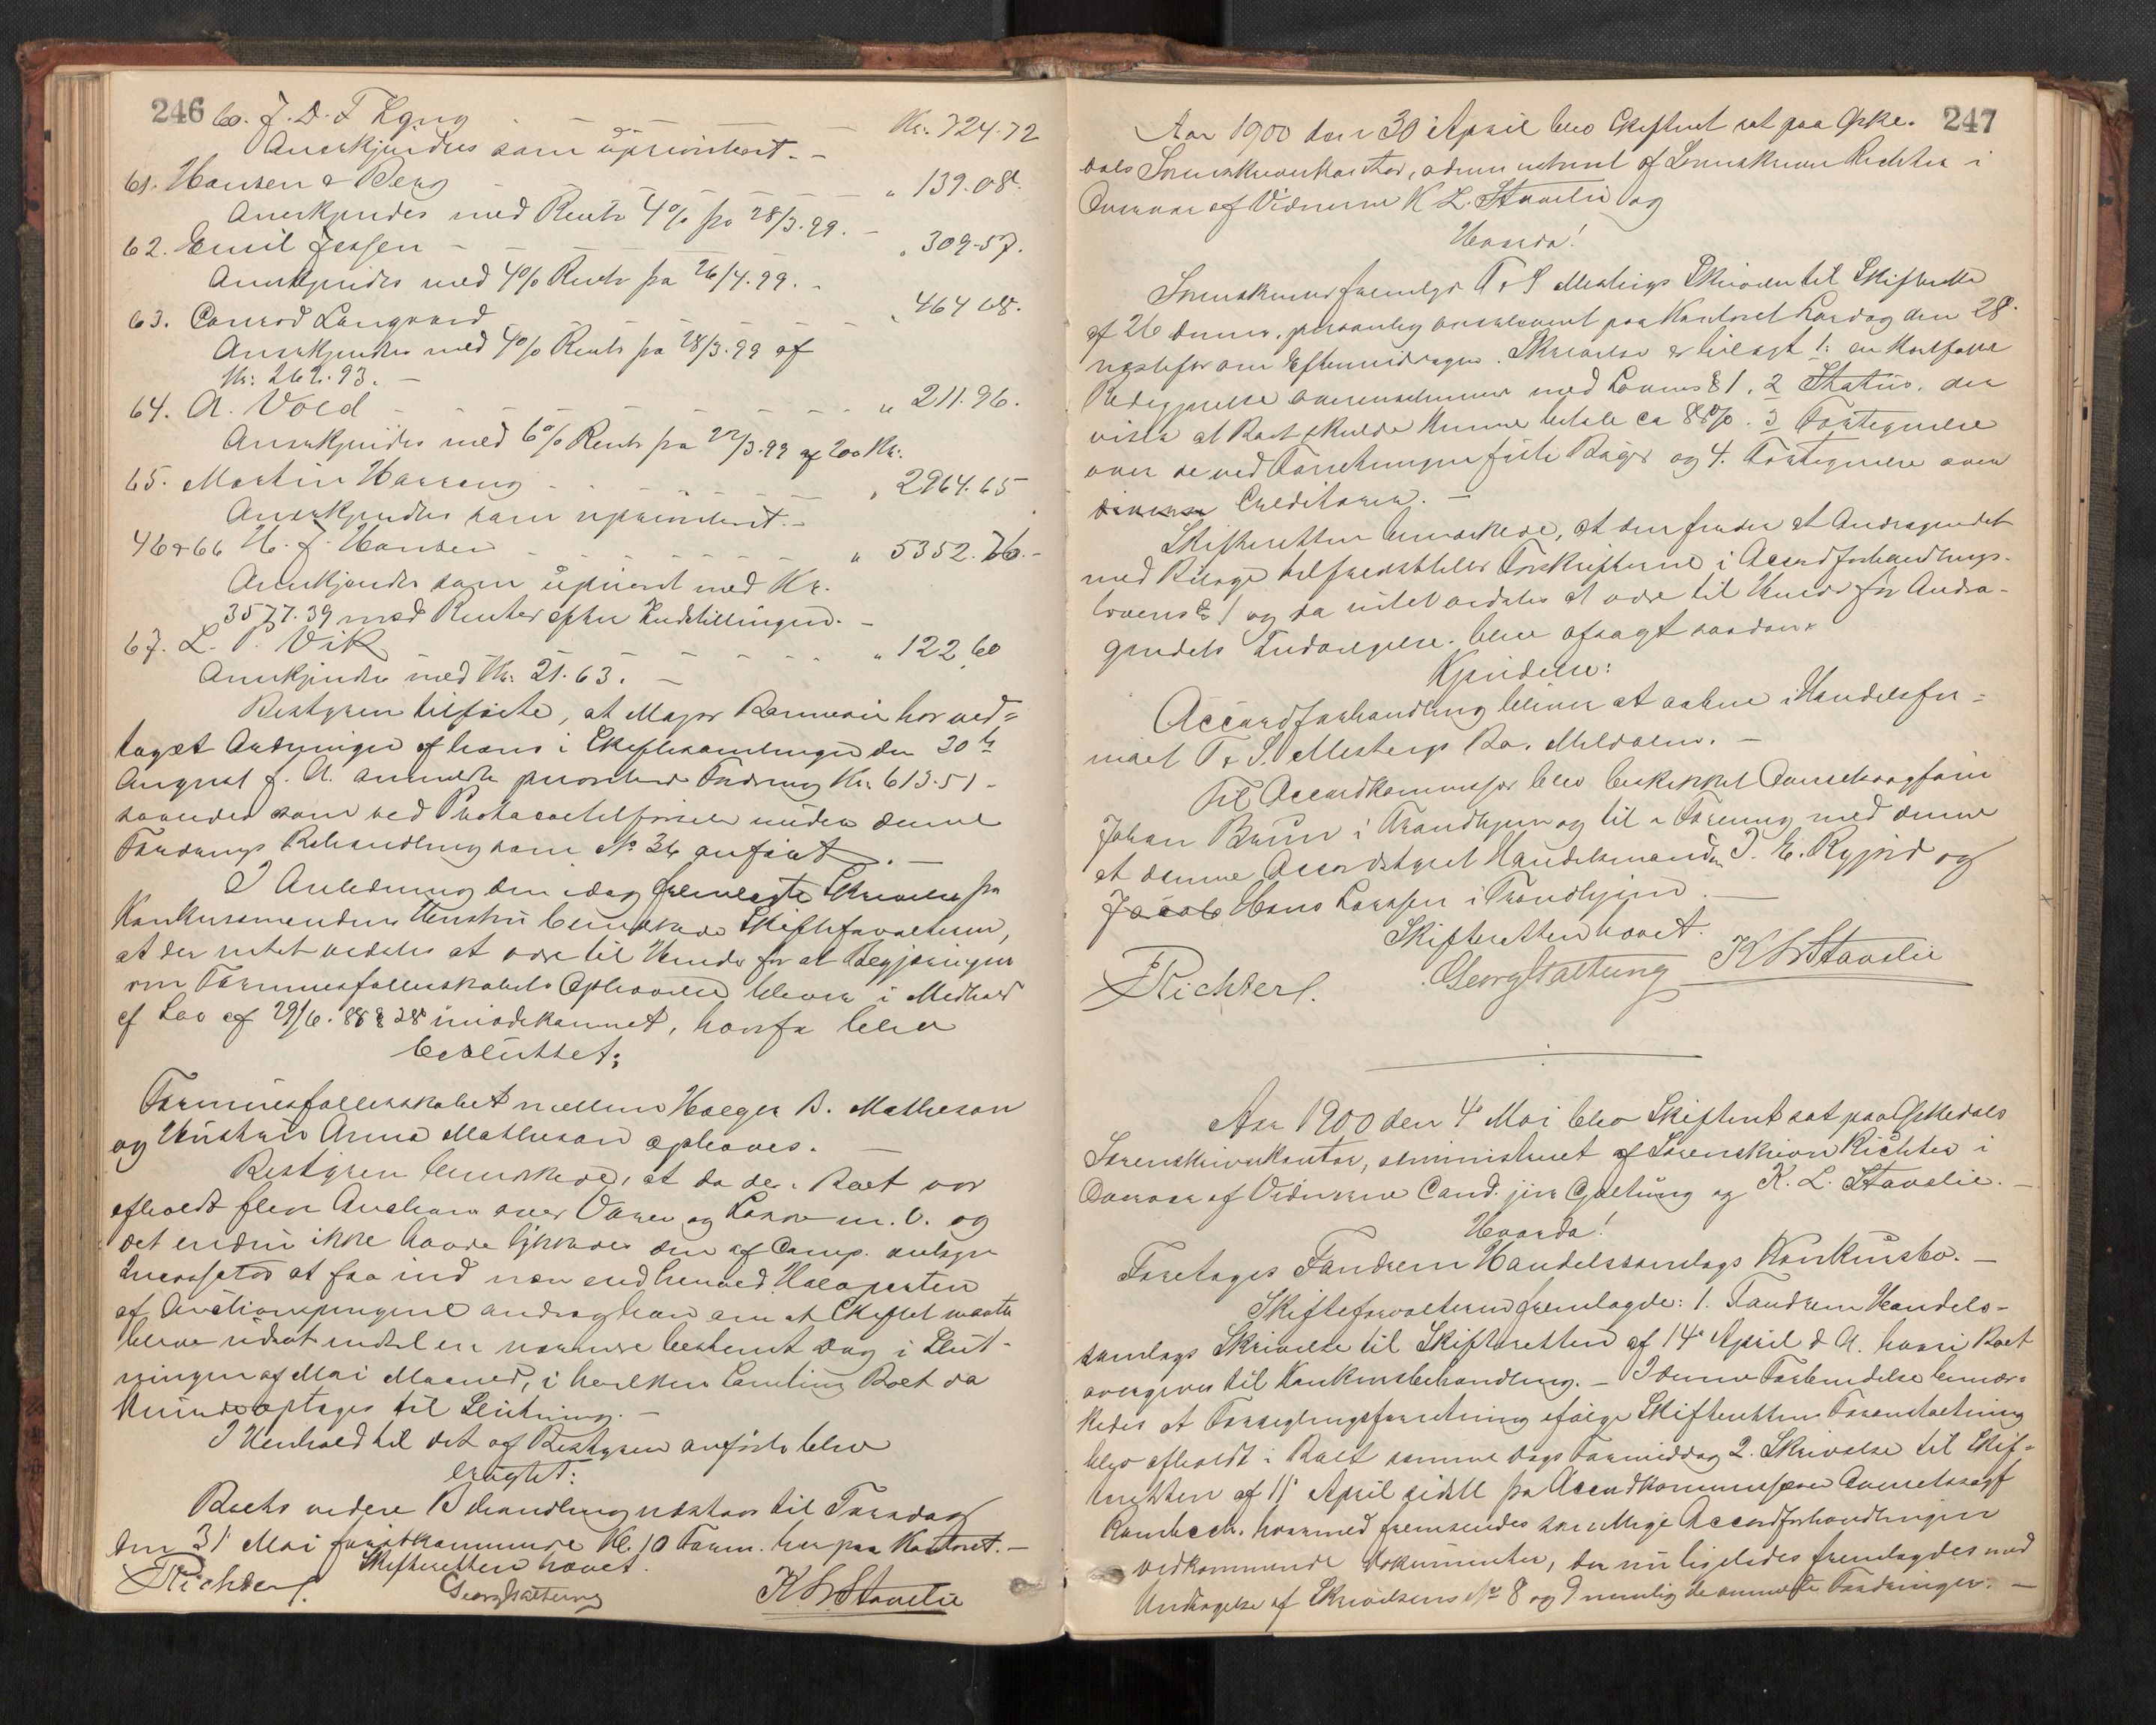 246
60. J. D. F Lyng — — — Kr. 724.72
Anerkjendes som uprioritert. -
61. Hansen & Berg — — — „ 139.08.
Anerkjendes med Rente 4% fra 28/3.99. —
62. Emil Jessen — — — „ 309.57.
Anerkjendes med 4% Rente fra 26/4.99. -
63. Conrod Langaard — — — „ 464
Anerkjendes med 4% Rente fra 28/3.99 af
Kr. 262.93. —
64. A. Vold — — — „ 211.96.
Anerkjendes med 6% Rente fra 22/3.99 af 200 Kr.
65. Martin — — — „ 2964.65
Anerkjendes som uprioritert. -
46 & 66 H. J. Hansen — — — „ 5352.76.-
Anerkjendes som uprioriteret med Kr.
3577.39 med Renter efter Indstillingen. -
67. L. P. Vik — — — „ 122,60
Anerkjendes med Kr. 21.63. —
Bestyren tilføiede, at Major har ved-
taget af hans i Skiftesamlingen den 20de
August f. A. anmeldte prioriterede Fordring Kr. 613.51 -
saaledes som ved Protocoltilførsel under denne
Fordrings Behandling som No 36 anført. —
I Anledning den idag fremlagte Skrivelse fra
Konkursmandens Hustru bemærkede Skifteforvalteren,
at der intet vedates at være til Hinder for at Begjæringen
om Formuesfællesskabets Ophævelse bliver i Medhold
af Lov af 29/6. 88 § 28 imødekommet, hvorfor blev
besluttet:
Formuesfællesskabet mellem Holger B. Mathesen
og Hustru Anna Mathesen ophæves. —
Bestyren bemærkede, at da der i Boet var
afholdt flere Auctioner over Varer og Løsøre m. v. og
det endnu ikke havde lykkedes den af Comp. antagne
Incassator at faa ind mer end henved Halvparten
af Auctionspengene androg han om at Skiftet maatte
blive udsat indtil en nærmere bestemt Dag i Slut-
ningen af Mai Maaned, i hvilken Samling Boet da
kunde optages til Slutning. —
I Henhold til det af Bestyren anførte blev
eragtet:
Boets videre Behandling udstaar til Torsdag
den 31 Mai førstkommende Kl. 10 Form. her paa Kontoret. —
Skifteretten hævet.
Richter. Georg Galtung K L Stavslie
247
Aar 1900 den 30 April blev Skifteret sat paa Orke-
dals Sorenskriverkontor, administreret af Sorenskriver Richter i
Overvær af Vidnerne K. L. Stavslie og
Hvorda!
Sorenskriveren fremlagde T & S Skrivelse til Skifteretten
af 26 dennes, personlig overleveret paa Kontoret Lørdag den 28.
næstefter om Eftermiddagen. Skrivelsen er bilagt 1: en kortfattet
Redegjørelse overensstemmende med Lovens § 1, 2 Status, der
viser at Boet skulde kunne betale ca 88%. 3 Fortegnelse
over de ved Forretningen førte Bøger og 4. Fortegnelse over
diverse Creditorer. —
Skifteretten bemærkede, at den finder at Andragendet
med Bilage tilfredsstiller Forskrifterne i Accordforhandlings-
lovens § 1 og da intet vedates at være til Hinder for Andra-
gendets Indvilgelse, blev afsagt saadan
Kjendelse:
Accordforhandling bliver at aabne i Handelsfir-
maet T & S. Bo. Meldalen. —
Til Accordkommissær blev beskikket Overretssagfører
Johan Brun i Trondhjem og til i Forening med denne
at danne Accordstyret Handelsmændene J. E. Rygjord og
Jacob Hans Larssen i Trondhjem. —
Skifteretten hævet.
Richter. Georg Galtung K L Stavslie
Aar 1900 den 4. Mai blev Skifteret sat paa Orkedals
Sorenskriverkontor, administreret af Sorenskriver Richter i
Overvær af Vidnerne Cand. jur Galtung og K. L. Stavslie. —
Hvorda!
Foretoges Fandrem Handelssamlags Konkursbo. —
Skifteforvalteren fremlagde: 1. Fandrem Handels-
samlags Skrivelse til Skifteretten af 14. April d. A. hvori Boet
overgives til Konkursbehandling. — I denne Forbindelse bemær-
kedes at Forseglingsforretning ifølge Skifterettens Foranstaltning
blev afholdt i Boet samme Dags Formiddag 2. Skrivelse til Skif-
teretten af 11 April sidstl fra Accordkommissæren Overretssagf
hvormed fremsendes samtlige Accordforhandlingen
vedkommende Dokumenter, der nu ligeledes fremlagdes med
Undtagelse af Skrivelsens No 8 og 9 nemlig de anmeldte Fordringer. —